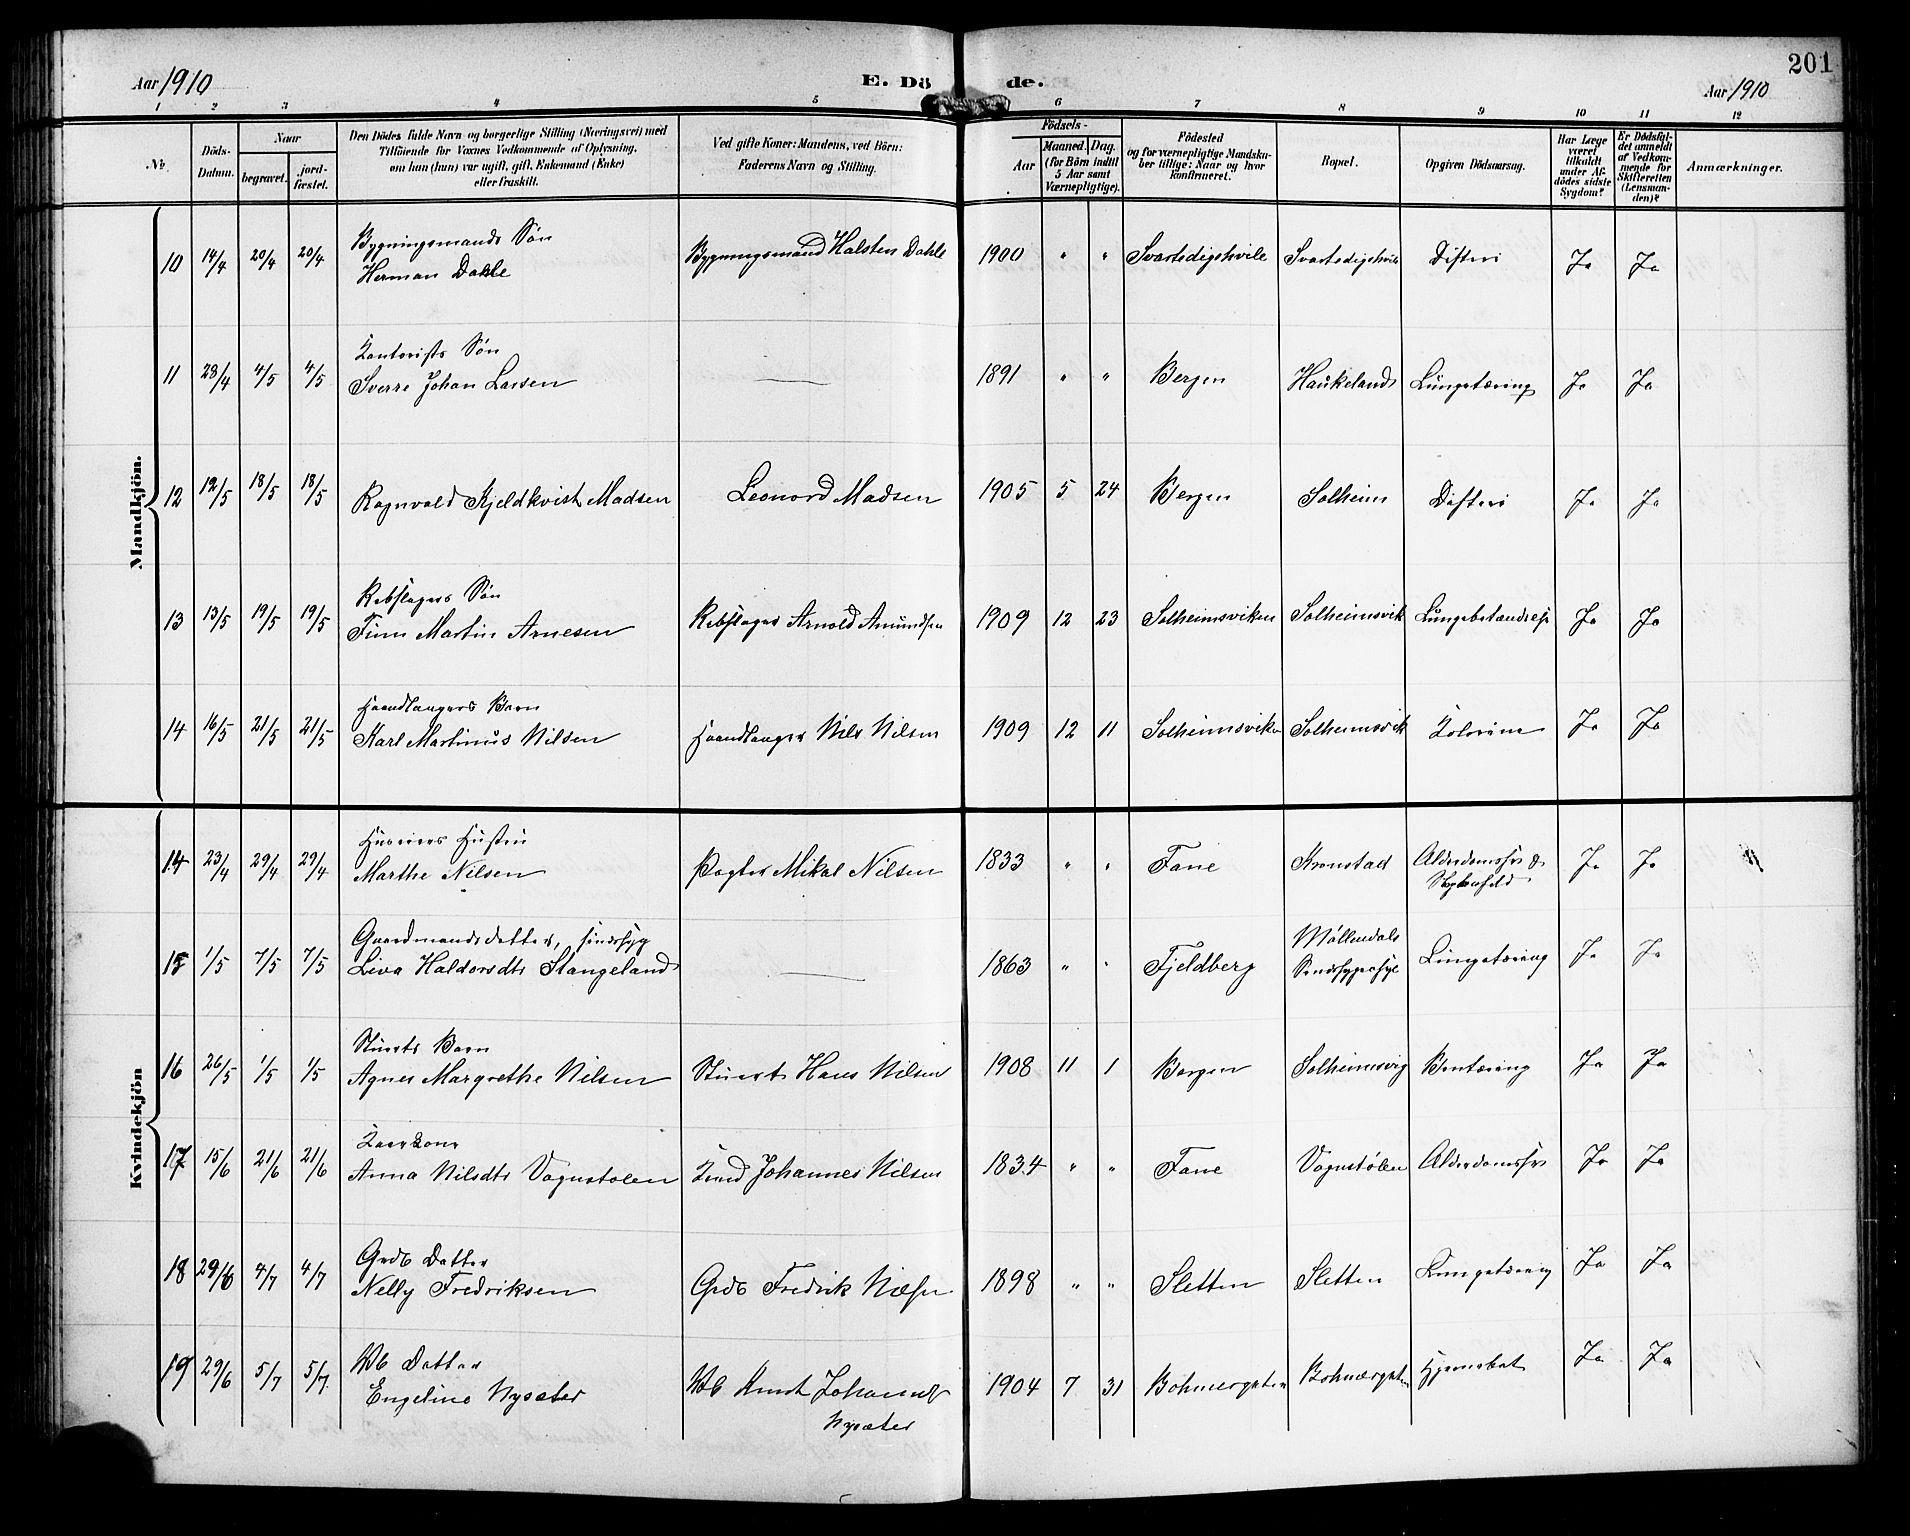 201
Aar 1910
E. Döde.
Aar 1910
1 2 3 4 5 6 7 8 9 10 11 12
No.
Döds-Datum.
Naar
begravet.
jord-fæstet.
Den Dödes fulde Navn og borgerlige Stilling (Næringsvei) med
Tilföiende for Voxnes Vedkommende af Oplysning,
om han (hun) var ugift, gift, Enkemand (Enke)
eller fraskilt.
Ved gifte Koner: Mandens, ved Börn:
Faderens Navn og Stilling.
Födsels-
Aar
Maaned. Dag.
(for Börn indtil
5 Aar samt
Værnepligtige).
Födested
og for værnepligtige Mandsku-
ber tillige: Naar og hvor
konfirmeret.
Bopæl.
Opgiven Dödsaarsag.
Har Læge
været
tilkaldt
under Af-
dödes sidste
Sygdom?
Er Dödsfal-
det anmeldt
af Vedkom-
mende for
Skifteretten
(Lensman-
den)?
Anmærkninger.
Mandkjön.
Bygningsmands Søn
10 14/4 20/4 20/4 Herman Dahle Bygningsmand Halsten Dahle 1900 " " Svartedigshvile Svartedigshvile Difteri Ja Ja
Kontorists Søn
11 28/4 4/5 4/5 Sverre Johan Larsen — 1891 " " Bergen Haukelands Lungetæring Ja Ja
12 12/5 18/5 18/5 Ragnvald Kjeldkvist Madsen Leonard Madsen 1905 5 24 Bergen Solheim Difteri Ja Ja
Rebslagers Søn
13 13/5 19/5 19/5 Finn Martin Arnesen Rebslager Arnold Amundsen 1909 12 23 Solheimsviken Solheimsvik Lungebetændelse Ja Ja
Haandlangers Barn
14 16/5 21/5 21/5 Karl Martinus Nilsen Haandlanger Nils Nilsen 1909 12 11 Solheimsviken Solheimsvik Kolerine Ja Ja
Kvindekjön
Huseiers Hustru
14 23/4 29/4 29/4 Marthe Nilsen Pagter Mikal Nilsen 1833 " " Fane Kronstad Alderdomssvs &
Ja Ja
Gaardmandsdatter, sindssyg
15 1/5 7/5 7/5 Liva Haldorsdtr Stangeland — 1863 " " Fjeldberg Møllendals
Sindssygeasyl Lungetæring Ja Ja
Stuerts Barn
16 26/5 1/5 1/5 Agnes Margrethe Nilsen Stuert Hans Nilsen 1908 11 1 Bergen Solheimsvig Bentæring Ja Ja
Kaarkone
17 15/6 21/6 21/6 Anna Nilsdtr Vognstølen Kaard Johannes Nilsen 1834 " " Fane Vognstølen Alderdomssvs Ja Ja
Grdb Datter
18 29/6 4/7 4/7 Nelly Fredriksen Grdb Fredrik Nilsen 1898 " " Sletten Sletten Lungetæring Ja Ja
Datter
19 29/6 5/7 5/7 Engeline Nysæter Knut Johannes
Nysæter 1904 7 31 Bohmergaten Bohmergaten Ja Ja